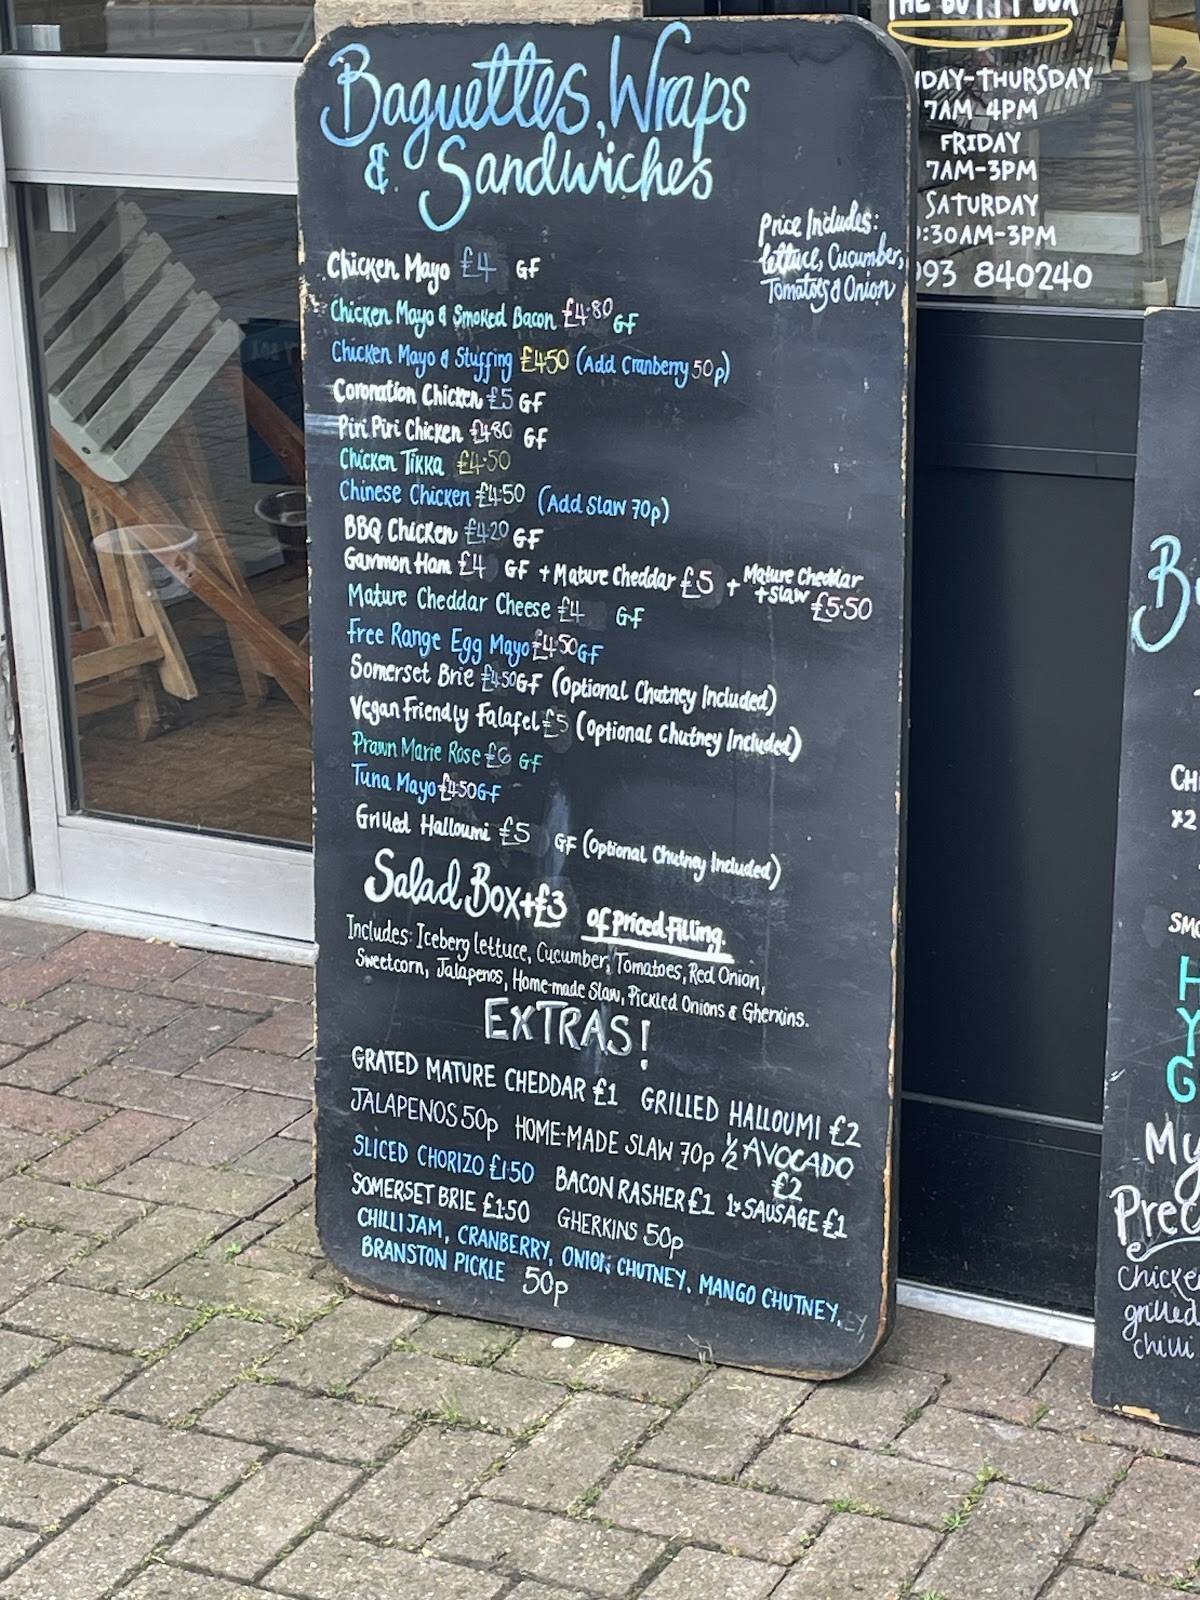 Baguettes, Wraps
& Sandwiches
Price Includes:
lettuce, Cucumber,
Tomatoes & Onion
Chicken Mayo £4 GF
Chicken Mayo & Smoked Bacon £4.80 GF
Chicken Mayo & Stuffing £4.50 (Add Cranberry 50p)
Coronation Chicken £5 GF
Piri Piri Chicken £4.80 GF
Chicken Tikka £4.50
Chinese Chicken £4.50 (Add Slaw 70p)
BBQ Chicken £4.20 GF
Gammon Ham £4 GF + Mature Cheddar £5 + Mature Cheddar
+ Slaw £5.50
Mature Cheddar Cheese £4 GF
Free Range Egg Mayo £4.50 GF
Somerset Brie £4.50 GF (Optional Chutney Included)
Vegan Friendly Falafel £5 (Optional Chutney Included)
Prawn Marie Rose £6 GF
Tuna Mayo £4.50 GF
Grilled Halloumi £5 GF (Optional Chutney Included)
Salad Box + £3 of Priced Filling.
Includes: Iceberg lettuce, Cucumber, Tomatoes, Red Onion,
Sweetcorn, Jalapenos, Home-made Slaw, Pickled Onions & Gherkins.
EXTRAS!
GRATED MATURE CHEDDAR £1 GRILLED HALLOUMI £2
JALAPENOS 50p HOME-MADE SLAW 70p ½ AVOCADO
£2
SLICED CHORIZO £1.50 BACON RASHER £1 1x SAUSAGE £1
SOMERSET BRIE £1.50 GHERKINS 50p
CHILLI JAM, CRANBERRY, ONION CHUTNEY, MANGO CHUTNEY,
BRANSTON PICKLE 50p
THE BUTTY BOX
DAY-THURSDAY
7AM-4PM
FRIDAY
7AM-3PM
SATURDAY
:30AM-3PM
93 840240
B
CH
x2
SMO
H
Y
G
My
Prec
Chicke
grilled
Chilli